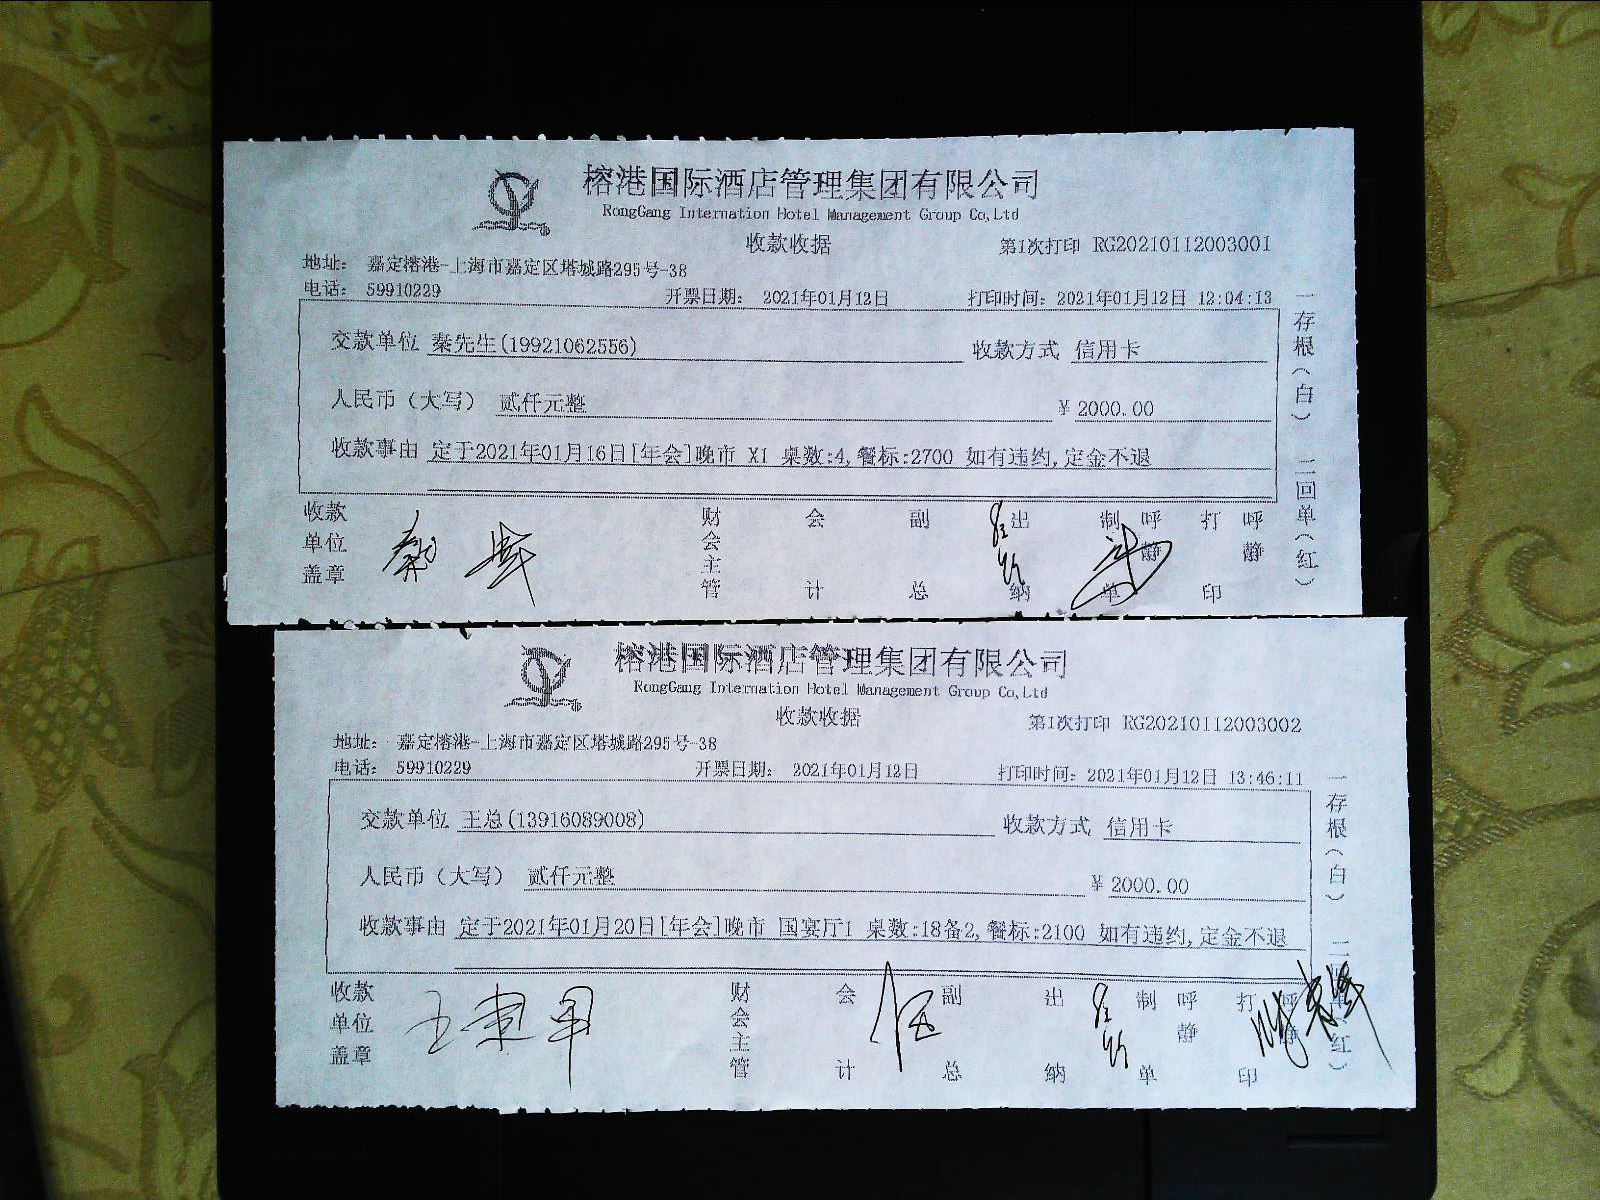 榕港国际酒店管理集团有限公司
RongGang Internation Hotel Management Group Co,Ltd
收款收据 第1次打印 RG20210112003001
地址： 嘉定榕港-上海市嘉定区塔城路295号-38
电话： 59910229 开票日期： 2021年01月12日 打印时间：2021年01月12日 12:04:13
交款单位 秦先生(19921062556) 收款方式 信用卡
人民币（大写） 贰仟元整 ¥ 2000.00
收款事由 定于2021年01月16日[年会]晚市 X1 桌数:4,餐标:2700 如有违约,定金不退
一存根（白） 二回单（红）
收款单位盖章 财会主管 会计 副总 出纳 制单 呼静 打印 呼静
榕港国际酒店管理集团有限公司
RongGang Internation Hotel Management Group Co,Ltd
收款收据 第1次打印 RG20210112003002
地址： 嘉定榕港-上海市嘉定区塔城路295号-38
电话： 59910229 开票日期： 2021年01月12日 打印时间：2021年01月12日 13:46:11
交款单位 王总(13916089008) 收款方式 信用卡
人民币（大写） 贰仟元整 ¥ 2000.00
收款事由 定于2021年01月20日[年会]晚市 国宴厅1 桌数:18备2,餐标:2100 如有违约,定金不退
一存根（白） 二回单（红）
收款单位盖章 财会主管 会计 副总 出纳 制单 呼静 打印 呼静